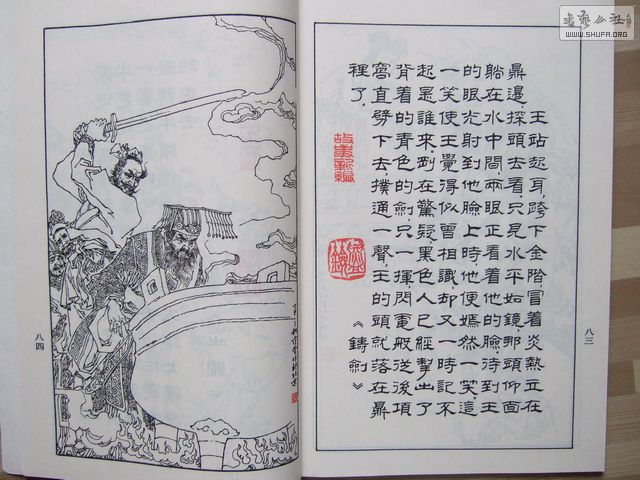 王站起身,跨下金階,冒着炎熱立在
鼎邊,探頭去看,只是水平如鏡,那頭仰面
躺在水中間,兩眼正看着他的臉,待到王
的眼光射到他臉上時他便嫣然一笑,這
一笑使王覺得似曾相識,却又一時記不
起是誰來,剛在驚疑,黑色人已經掣出了
背着的青色的劍,只一揮,閃電般從後項
窩直劈下去,撲通一聲,王的頭就落在鼎
裡了。
《鑄劍》
故事新編
八三
八四
WWW.SHUFA.ORG